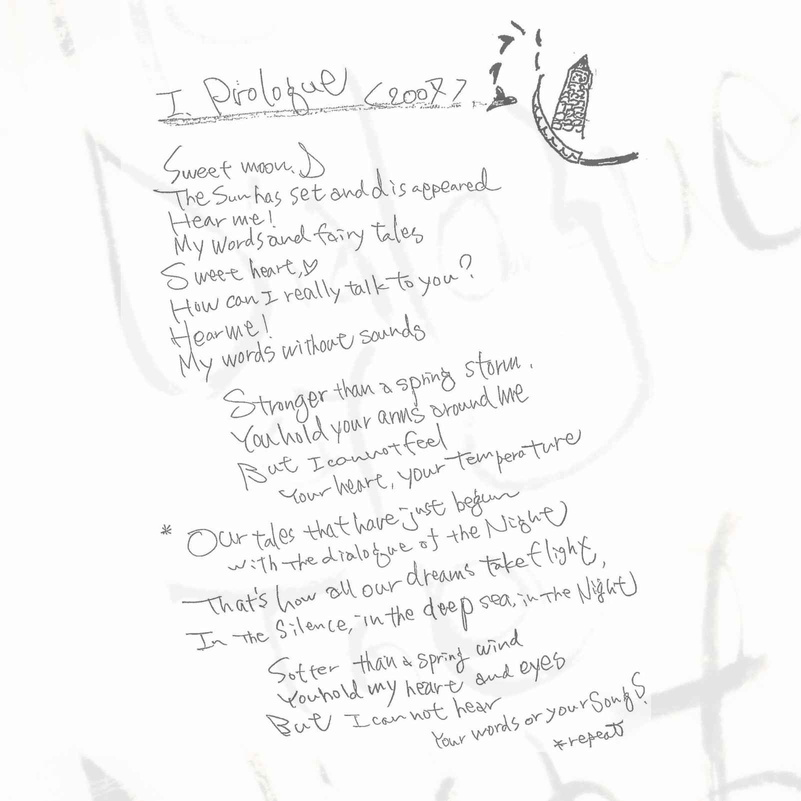 I. Prologue (2007)
Sweet moon.
The Sun has set and disappeared
Hear me!
My words and fairy tales
Sweet heart,♡
How can I really talk to you?
Hear me!
My words without sounds
Stronger than a spring storm.
You hold your arms around me
But I cannot feel
Your heart, your temperature
* Our tales that have just begun
with the dialogue of the Night
That's how all our dreams take flight,
In the Silence, in the deep sea, in the Night
Softer than a spring wind
You hold my heart and eyes
But I can not hear
Your words or your Songs
*repeat